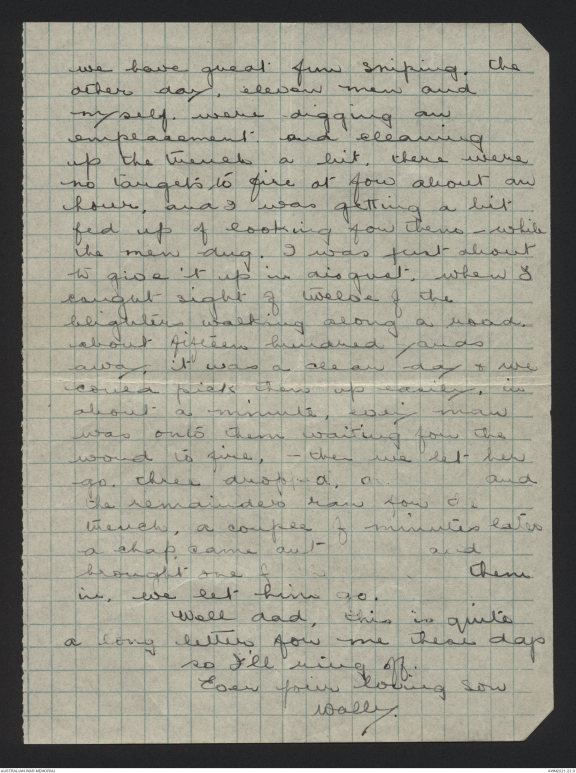 we have great fun sniping. the
other day, eleven men and
myself. were digging an
emplacement. and cleaning
up the trench a bit, there were
no targets, to fire at for about an
hour, and I was getting a bit
fed up of looking for them - while
the men dug. I was just about
to give it up in disgust, when I
caught sight of twelve of the
blighters walking along a road.
about fifteen hundred yards
away, it was a clear day & we
could pick them up easily, in
about a minute, every man
was onto them waiting for the
word to fire, - then we let her
go. three dropped, and
the remainders ran for
trench, a couple of minutes later
a chap, came out and
brought one them
in, we let him go.
Well dad, this is quite
a long letter for me these days
so I'll ring off.
Ever your loving son
Wally.
AUSTRALIAN WAR MEMORIAL